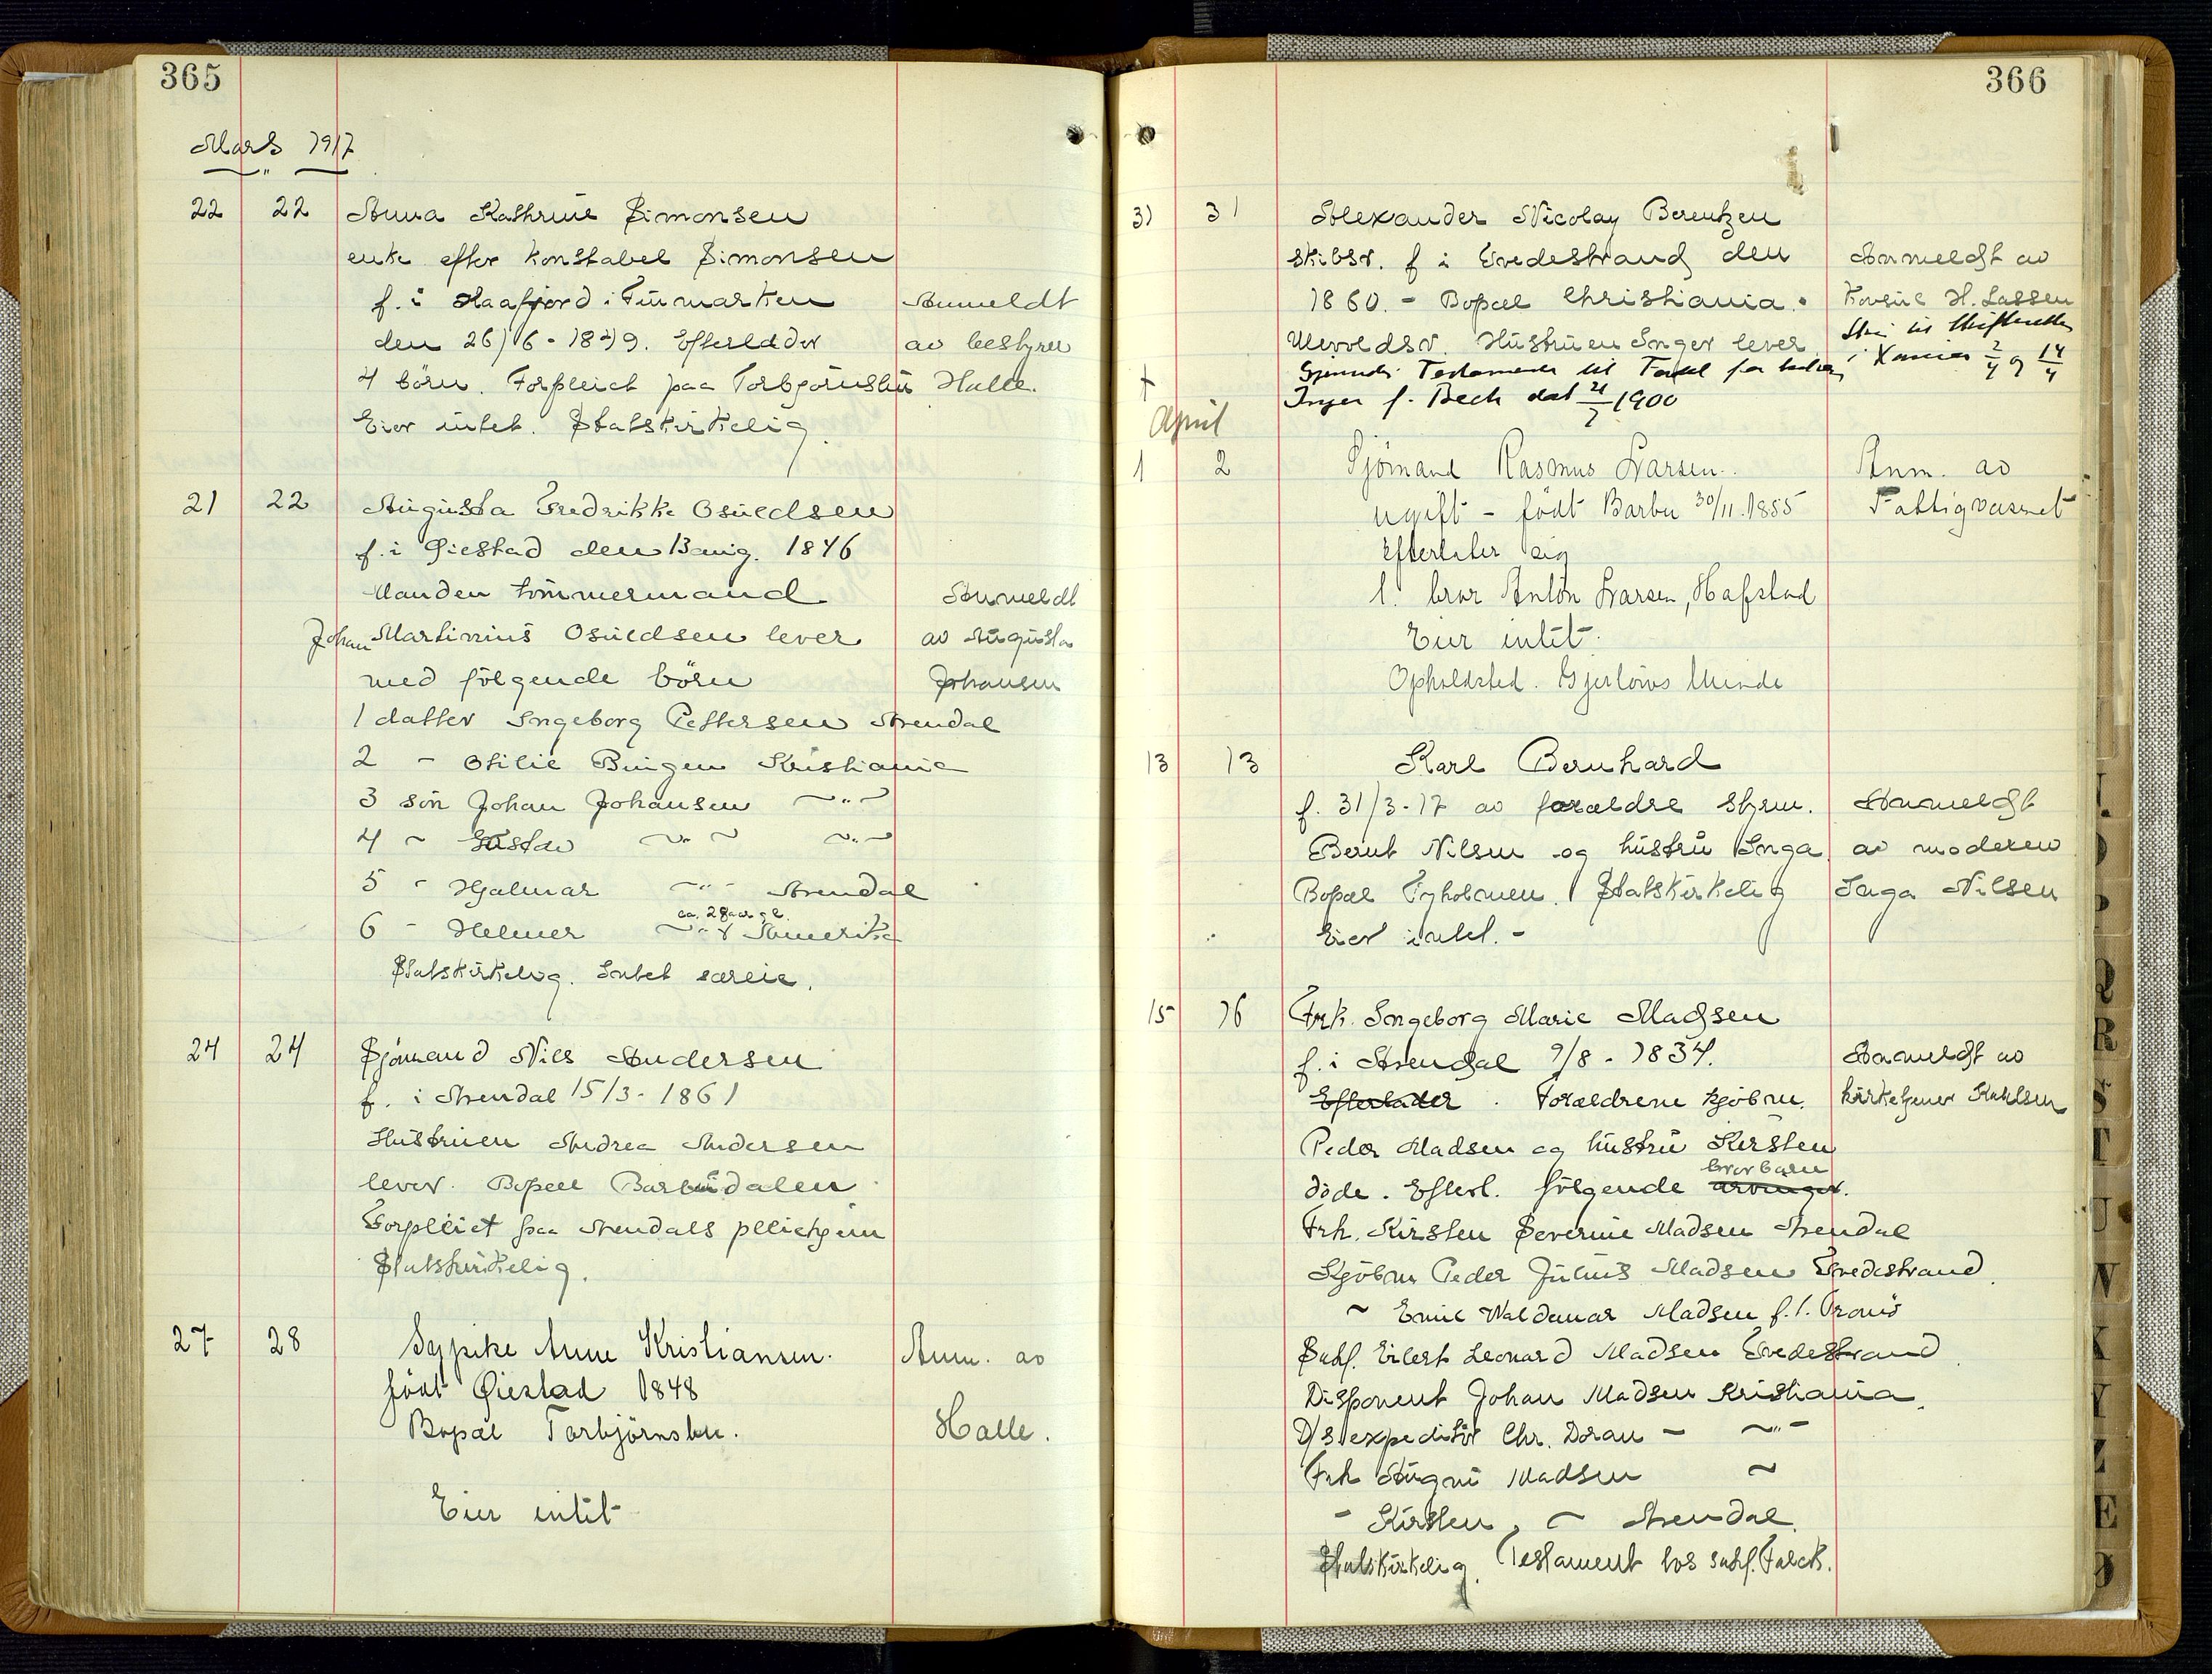 365
Mars 1917
22 22 Anna Kathrine Simonsen
enke efter konstabel Simonsen
f. i Kaafjord i Finmarken Anmeldt
den 26/6-1849. Efterlader av bestyrer
4 börn. Forpleiet paa Torbjörnsbu Halle.
Eier intet. Statskirkelig
21 22 Augusta Fredrikke Osuldsen
f. i Öiestad den 13 aug. 1846
Manden tömmermand Anmeldt
Johan Martinius Osuldsen lever av Augusta
med fölgende börn Johansen
1 datter Ingeborg Pettersen Arendal
2 - Otilie Bingen Kristiania
3 sön Johan Johansen ~"~
4 ~ Gustav ~"~ ~"~
5 - Hjalmar ~"- Arendal
ca. 28 aar gl.
6 - Helmer ~"~ Amerika
Statskirkelig. Intet særeie.
24 24 Sjömand Nils Andersen
f. i Arendal 15/3-1861
Hustruen Andrea Andersen
lever. Bopæl Barbudalen
Forpleiet paa Arendals pleiehjem
Statskirkelig.
27 28 Sypike Anne Kristiansen. Anm. av
födt Øiestad 1848
Bopæl Torbjörnsbu. Halle.
Eier intet
366
31 31 Alexander Nicolay Berentzen
skibsr. f i Tvedestrand den Anmeldt av
1860. - Bopæl Christiania. Konsul H. Lassen
Uevoldsv. Hustruen Inger lever Skr. til Skifteretten
Gjensidig Testamente til Fordel for
i Xania 2/4 og 14/4
+ Inger f. Bech dat 21/7 1900
April
1 2 Sjömand Rasmus Larsen. Anm. av
ugift - födt Barbu 30/11.1855 Fattigvæsnet
Efterlater sig
1. bror Anton Larsen, Hafstad
Eier intet.
Opholdsted. Gjerlöws Minde
13 13 Karl Bernhard
f. 31/3-17 av forældre styrm. Anmeldt
Bernt Nilsen og hustru Inga av moderen
Bopæl Tyholmen. Statskirkelig Inga Nilsen
Eier intet. -
15 16 Frk. Ingeborg Marie Madsen
f. i Arendal 9/8-1834. Anmeldt av
Efterlader. Forældrene kjöbm. kirketjener Kahlsen
Peder Madsen og hustru Kirsten
brorbarn
döde. Efterl. fölgende arvinger.
Frk. Kirsten Severine Madsen Arendal
Kjöbm Peder Julius Madsen Tvedestrand.
~ Emil Waldemar Madsen f.t. Tromö
Sakf. Eilert Leonard Madsen Tvedestrand
Disponent Johan Madsen Kristiania.
D/S expeditör Chr. Doran - ~"-
Frk Aagni Madsen ~
- Kirsten, ~ Arendal.
Statskirkelig. Testament hos sakf. Falck.